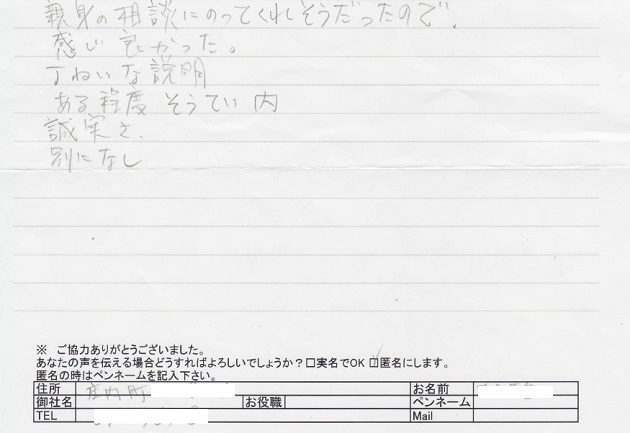 親身の相談にのってくれそうだったので、
感じ良かった。
丁ねいな説明
ある程度 そうてい内
誠実さ、
別になし
※ ご協力ありがとうございました。
あなたの声を伝える場合どうすればよろしいでしょうか?□実名でOK ☑匿名にします。
匿名の時はペンネームを記入下さい。
住所 庄内町 お名前
御社名 お役職 ペンネーム
TEL Mail